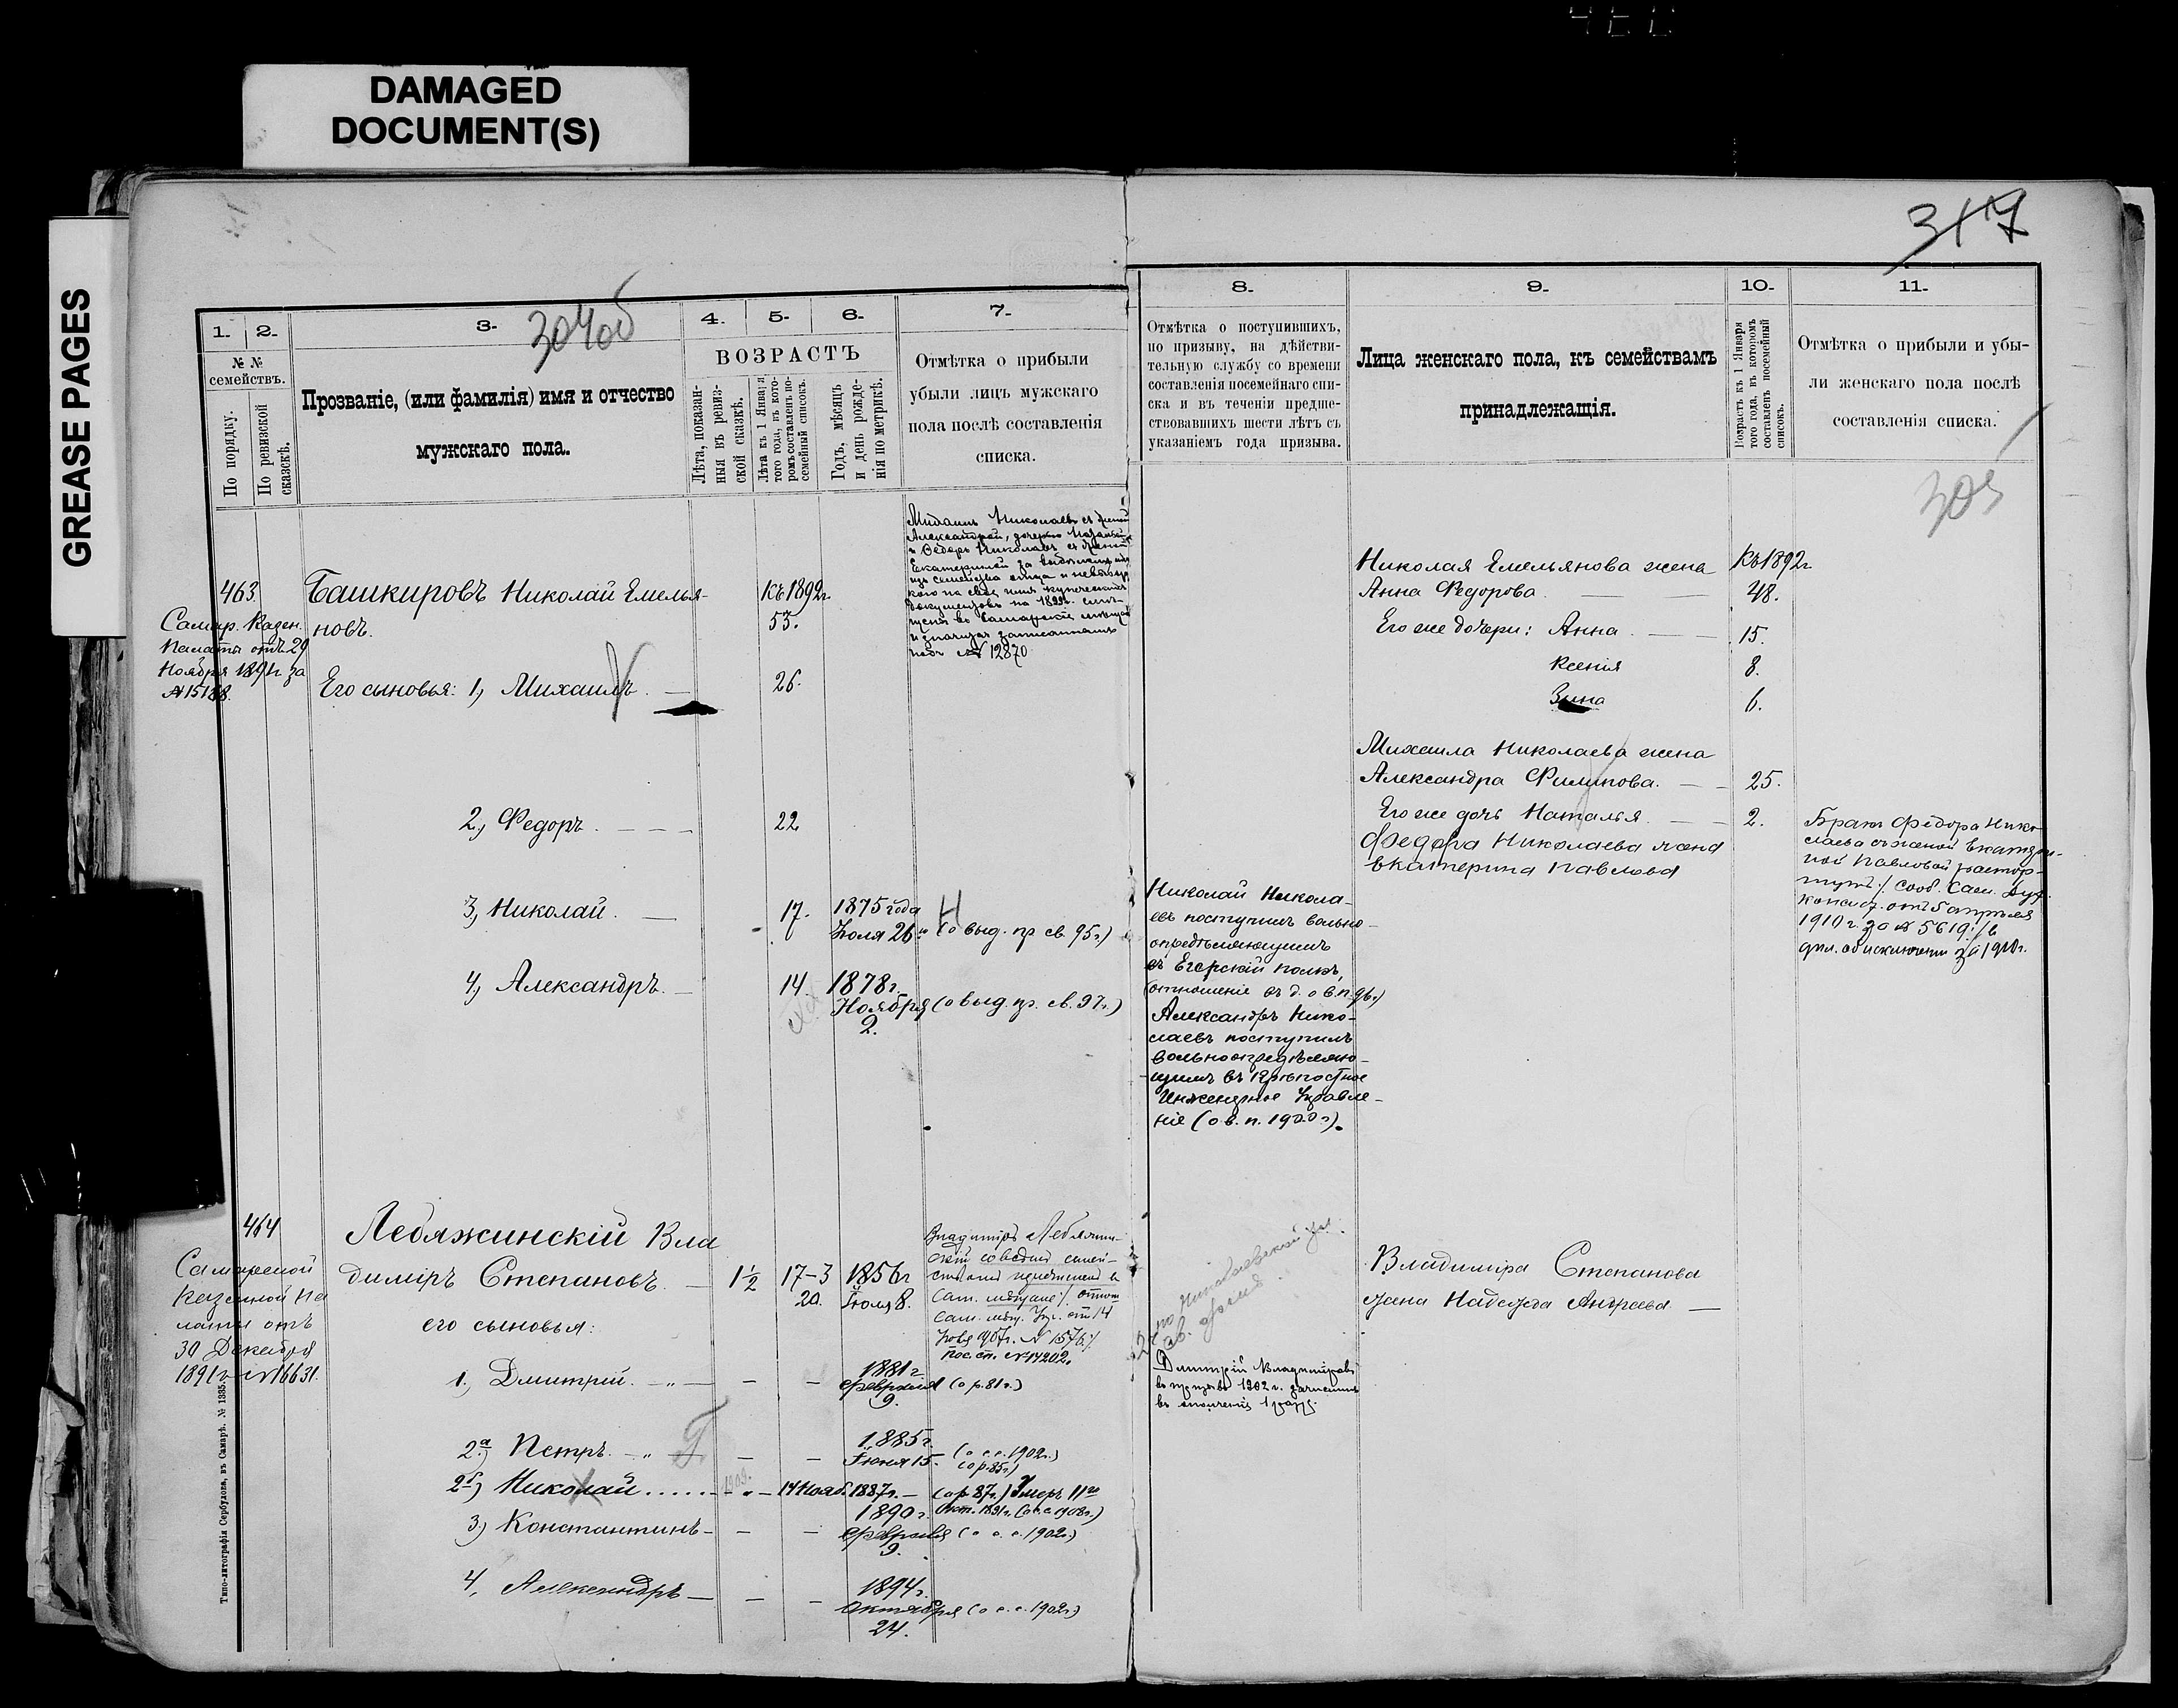 DAMAGED
DOCUMENT(S)
GREASE PAGES
317
304об
305
1.
2.
3.
4.
5.
6.
7.
№ №
семействъ.
По порядку.
По ревизской
сказскѣ.
Прозваніе, (или фамилія) имя и отчество
мужскаго пола.
ВОЗРАСТЪ
Лѣта, показан-
ныя въ ревиз-
ской сказкѣ.
Лѣта къ 1 Января
того года, въ кото-
ромъ составленъ по-
семейный списокъ.
Годъ, мѣсяцъ
и день рожде-
нія по метрикѣ.
Отмѣтка о прибыли
убыли лицъ мужскаго
пола послѣ составленія
списка.
463
Самар. Казен.
Палаты отъ 29
Ноября 1891г за
№15188.
Башкировъ Николай Емелья-
новъ.
Къ 1892г.
53.
Николаевъ съ женой
Александрой, дочерью
и Ѳедоръ Николаевъ съ женой
Екатериной за
изъ семейства отца и
кого на свое имя купеческихъ
документовъ на 1899г.
въ Самарскіе
подъ № 12870
Его сыновья: 1, Михаилъ. —
26.
2, Федоръ. — — —
22
3, Николай. —
17.
1875 года
Іюля 26
(о выд. пр св 95г.)
4, Александръ. —
14.
1878г.
Ноября
2.
(о выд. пр. св. 97г.)
464
Самарской
Казенной Па
латы отъ
30 Декабря
1891г №16631.
Лебяжинскій Вла
диміръ Степановъ. —
1½
17-3
20.
1856г
Іюля 8.
Владиміръ Лебяжин-
скій со всѣмъ семей-
ствомъ
Сам.
Сам. мѣщ. Упр. отъ 14
1907г. № 1576
пос. сп. №14202.
его сыновья:
1., Дмитрій. — „ —
1881г
февраля
9.
(о р. 81г.)
2а) Петръ. — „ —
1885г.
Іюня 15.
(о с.с. 1902г.)
(о р. 85г.)
2б) Николай......
14 Нояб. 1887г. —
(о р. 87г.) Умеръ 11го
Окт. 1891г. (о с.с 1908г.)
3) Константинъ —
1890г.
февраля
9.
(о с.с. 1902г.)
4, Александръ —
1894г.
Октября
24.
(о с.с. 1902г.)
Типо-литографія Сербулова, въ Самарѣ. № 1335.
8.
9.
10.
11.
Отмѣтка о поступившихъ,
по призыву, на дѣйстви-
тельную службу со времени
составленія посемейнаго спи-
ска и въ теченіи предше-
ствовавшихъ шести лѣтъ съ
указаніемъ года призыва.
Лица женскаго пола, къ семействамъ
принадлежащія.
Возрастъ къ 1 Января
того года, въ которомъ
составленъ посемейный
списокъ.
Отмѣтка о прибыли и убы-
ли женскаго пола послѣ
составленія списка.
Николая Емельянова жена
Къ 1892г
Анна Федорова. — —
48.
Его же дочери: Анна. —
15.
Ксенія
8.
Зина
6.
Михаила Николаева жена
Александра Филипова. — —
25.
Его же дочь Наталья. — —
2.
Федора Николаева жена
Екатерина Павлова
Бракъ Федора Нико-
лаева съ женой Екатери-
ной Павловой растор-
гнутъ ·/. сооб. Сам. Дух.
конс. отъ 5 апрѣля
1910 г. за № 5619 ·/. въ
дѣл. объ исключеніи за 1910г.
Николай Никола-
евъ поступилъ вольно-
опредѣляющимъ
въ Егерскій полкъ,
(отношеніе въ д. о в.п. 96г.)
Александръ Нико-
лаевъ поступилъ
вольноопредѣляю-
щимъ въ Крѣпостное
Инженерное Управле-
ніе (о в. п. 1900г).
по Николаевской
Владиміра Степанова
жена Надежда Андреева —
Дмитрій Владиміровъ
въ призывъ 1902г. зачисленъ
въ ополченіе 1 разр.